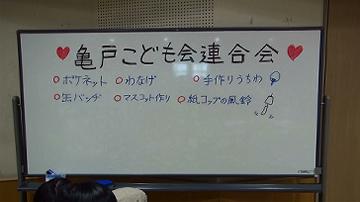 ♥亀戸こども会連合会♥
○ポケネット ○わなげ ○手作りうちわ
○缶バッヂ ○マスコット作り ○紙コップの風鈴